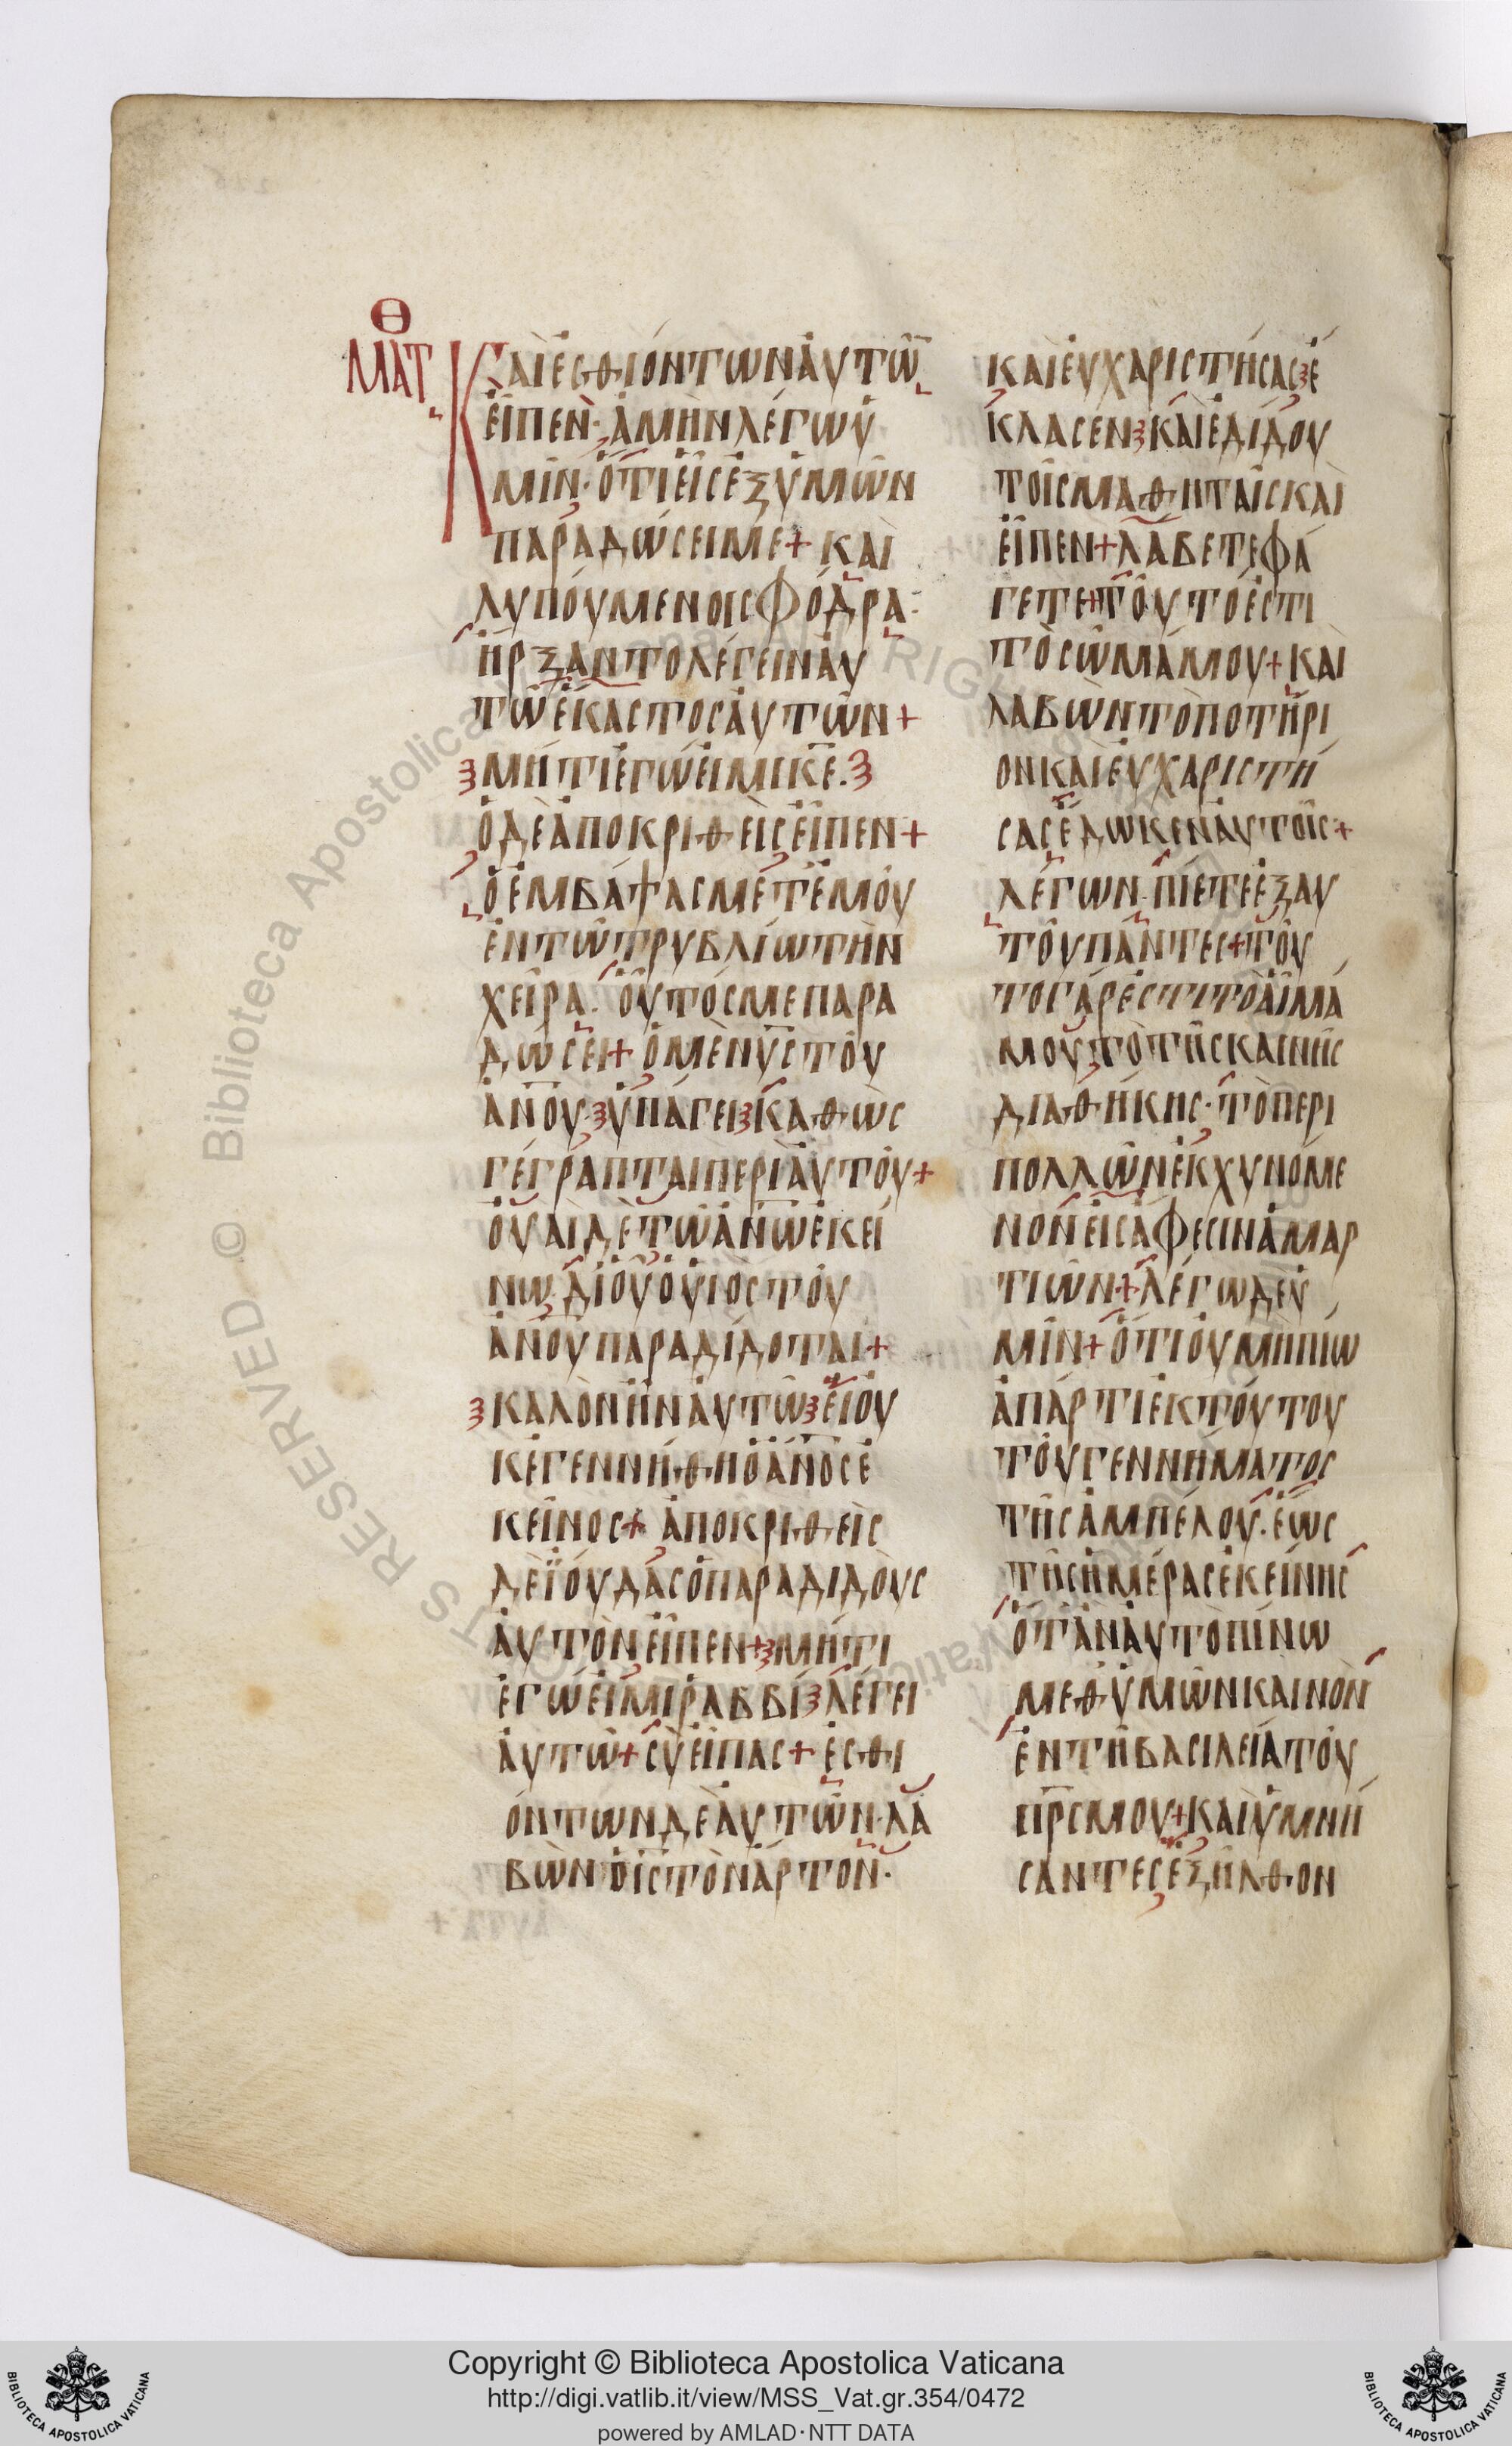 Θ
ΜΑΤ
ΚΑῚ ἘΣΘΙΌΝΤΩΝ ἈΥΤΩ͂
ἘΙΠΕΝ· ἈΜῊΝ ΛΈΓΩ Ὑ
ΜΙ͂Ν· ὍΤΙ ἘΙΣ ἘΞ ὙΜΩ͂Ν
ΠΑΡΑΔΏΣΕΙ ΜΕ + ΚΑῚ
ΛΥΠΟΎΜΕΝΟΙ ΣΦΌΔΡΑ·
ἬΡΞΑΝΤΟ ΛΈΓΕΙΝ ἈΥ
ΤΩ͂ ἝΚΑΣΤΟΣ ἈΥΤΩ͂Ν +
ΜΉΤΙ ἘΓΏ ἘΙΜΙ Κ̅Ε̅.
Ὁ ΔῈ ἈΠΟΚΡΙΘΕῚΣ ἘΙΠΕΝ +
Ὁ ἘΜΒΆΨΑΣ ΜΕΤ ἘΜΟΥ͂
ἘΝ ΤΩ͂ ΤΡΥΒΛΊΩ ΤῊΝ
ΧΕΙ͂ΡΑ· ὉΥΤΌΣ ΜΕ ΠΑΡΑ
ΔΏΣΕΙ + Ὁ ΜῈΝ Υ̅Σ̅ ΤΟΥ͂
Α̅Ν̅Ο̅Υ̅· ὙΠΆΓΕΙ ΚΑΘῺΣ
ΓΈΓΡΑΠΤΑΙ ΠΕΡῚ ἈΥΤΟΥ͂ +
ὈΥΑῚ ΔῈ ΤΩ͂ Α̅Ν̅Ω̅ ἘΚΕΊ
ΝΩ· ΔΙ ὉΥ͂ Ὁ ΥἹῸΣ ΤΟΥ͂
Α̅Ν̅Ο̅Υ̅ ΠΑΡΑΔΊΔΟΤΑΙ +
ΚΑΛῸΝ ἨΝ ἈΥΤΩ͂ ἘΙ ὈΥ
Κ ἘΓΕΝΝΉΘΗ Ὁ Α̅Ν̅Ο̅Σ̅ Ἐ
ΚΕΙ͂ΝΟΣ + ἈΠΟΚΡΙΘΕῚΣ
ΔῈ ἸΟΎΔΑΣ Ὁ ΠΑΡΑΔΙΔΟῪΣ
ἈΥΤῸΝ ἘΙΠΕΝ + ΜΉΤΙ
ἘΓΏ ἘΙΜΙ ΡΑΒΒΊ ΛΈΓΕΙ
ἈΥΤΩ͂ + ΣῪ ἘΙΠΑΣ + ἘΣΘΙ
ΌΝΤΩΝ ΔῈ ἈΥΤΩ͂Ν· ΛΑ
ΒῺΝ Ὁ Ι̅Σ̅ ΤῸΝ ἌΡΤΟΝ·
ΚΑῚ ἘΥΧΑΡΙΣΤΉΣΑΣ Ἔ
ΚΛΑΣΕΝ ΚΑῚ ἘΔΊΔΟΥ
ΤΟΙ͂Σ ΜΑΘΗΤΑΙ͂Σ ΚΑῚ
ἘΙΠΕΝ + ΛΆΒΕΤΕ ΦΆ
ΓΕΤΕ + ΤΟΥ͂ΤΟ ἘΣΤΙ
ΤῸ ΣΩ͂ΜΆ ΜΟΥ + ΚΑῚ
ΛΑΒῺΝ ΤῸ ΠΟΤΉΡΙ
ΟΝ ΚΑῚ ἘΥΧΑΡΙΣΤΉ
ΣΑΣ ἜΔΩΚΕΝ ἈΥΤΟΙ͂Σ +
ΛΈΓΩΝ· ΠΊΕΤΕ ἘΞ ΑΥ
ΤΟΥ͂ ΠΆΝΤΕΣ + ΤΟΥ͂
ΤΟ ΓΆΡ ἘΣΤΙ ΤῸ ἉΙΜΆ
ΜΟΥ ΤῸ ΤΗ͂Σ ΚΑΙΝΗ͂Σ
ΔΙΑΘΉΚΗΣ· ΤῸ ΠΕΡΙ
ΠΟΛΛΩ͂Ν ἘΚΧΥΝΌΜΕ
ΝΟΝ ἘΙΣ ἌΦΕΣΙΝ ἉΜΑΡ
ΤΙΩ͂Ν + ΛΈΓΩ ΔΕ Ὑ
ΜΙ͂Ν + ὍΤΙ ὈΥ ΜῊ ΠΙΩ
ἈΠΆΡΤΙ ἘΚ ΤΟΎΤΟΥ
ΤΟΥ͂ ΓΕΝΝΉΜΑΤΟΣ
ΤΗ͂Σ ἈΜΠΈΛΟΥ· ἝΩΣ
ΤΗ͂Σ ἩΜΈΡΑΣ ἘΚΕΊΝΗΣ
ὍΤΑΝ ἈΥΤῸ ΠΊΝΩ
ΜΕΘ ὙΜΩ͂Ν ΚΑΙΝῸΝ
ἘΝ ΤΗ͂ ΒΑΣΙΛΕΊΑ ΤΟΥ͂
Π̅Ρ̅Σ̅ ΜΟΥ + ΚΑῚ ὙΜΝΉ
ΣΑΝΤΕΣ ἘΞΗ͂ΛΘΟΝ
Copyright © Biblioteca Apostolica Vaticana
http://digi.vatlib.it/view/MSS_Vat.gr.354/0472
powered by AMLAD·NTT DATA
BIBLIOTECA APOSTOLICA VATICANA
BIBLIOTECA APOSTOLICA VATICANA